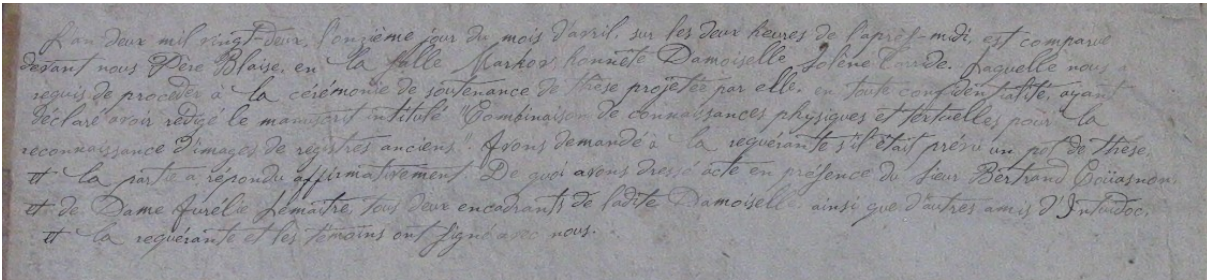 L'an deux mil vingt-deux, l'onzième jour du mois d'avril, sur les deux heures de l'après-midi, est comparue
devant nous Père Blaise, en la salle Markov honnête Damoiselle Solène Tarride. Laquelle nous a
requis de procéder à la cérémonie de soutenance de thèse projetée par elle, en toute confidentialité, ayant
déclaré avoir rédigé le manuscrit intitulé "Combinaison de connaissances physiques et textuelles pour la
reconnaissance d'images de registres anciens". Avons demandé à la requérante s'il était prévu un pot de thèse,
et la partie a répondu affirmativement. De quoi avons dressé acte en présence du sieur Bertrand Coüasnon,
et de Dame Aurélie Lemaitre, tous deux encadrants de ladite Damoiselle, ainsi que d'autres amis d'Intuidoc,
et la requérante et les témoins ont signé avec nous.